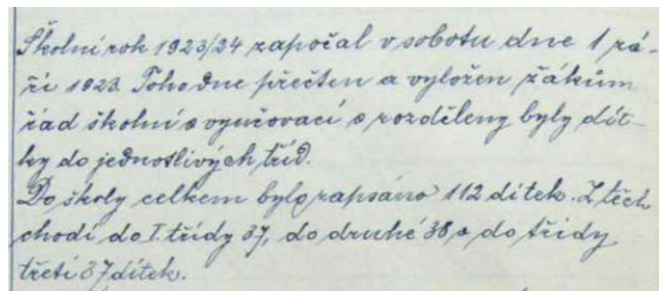 Školní rok 1923/24 započal v sobotu dne 1 zá-
ří 1923. Toho dne přečten a vyložen žákům
řád školní a vyučovací a rozděleny byly dít-
ky do jednotlivých tříd.
Do školy celkem bylo zapsáno 112 dítek. Z těch
chodí do I. třídy 37, do druhé 38 a do třídy
třetí 37 dítek.